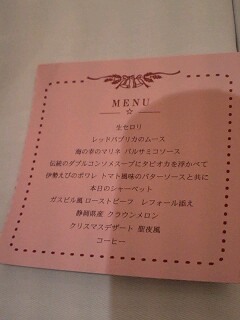 MENU
生セロリ
レッドパプリカのムース
海の幸のマリネ バルサミコソース
伝統のダブルコンソメスープにタピオカを浮かべて
伊勢えびのポワレ トマト風味のバターソースと共に
本日のシャーベット
ガスピル風 ローストビーフ レフォール添え
静岡県産 クラウンメロン
クリスマスデザート 聖夜風
コーヒー